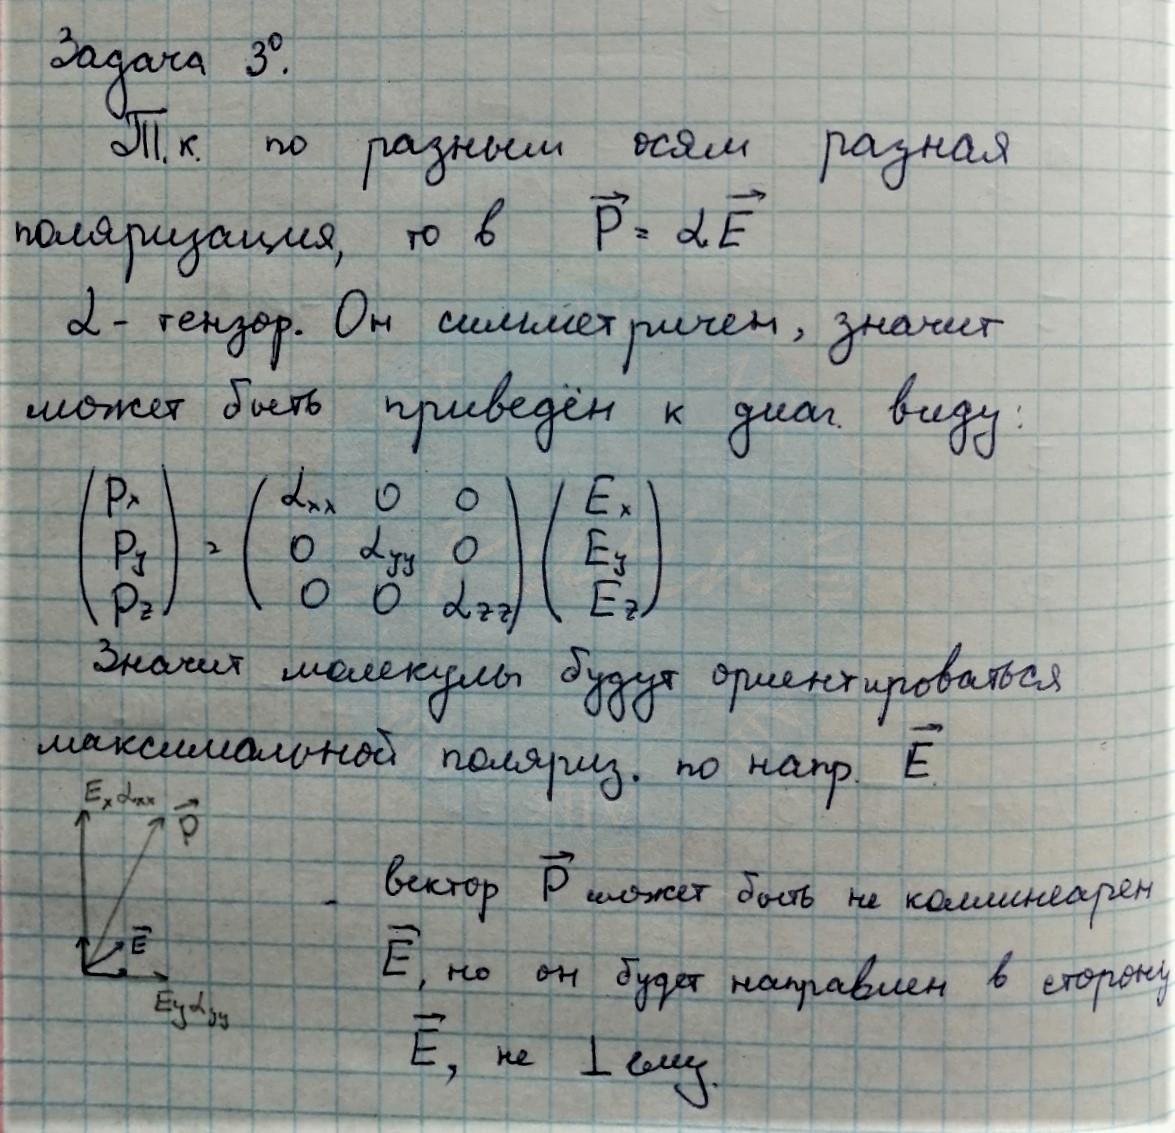 Задача 3⁰.
Т.к. по разным осям разная
поляризация, то в P⃗ = αE⃗
α - тензор. Он симметричен, значит
может быть приведён к диаг. виду:
(Px) = (αxx 0 0) (Ex)
(Py) = (0 αyy 0) (Ey)
(Pz) = (0 0 αzz) (Ez)
Значит молекулы будут ориентироваться
максимальной поляриз. по напр. E⃗
Exαxx
P⃗
E⃗
Eyαyy
- вектор P⃗ может быть не коллинеарен
E⃗, но он будет направлен в сторону
E⃗, не ⊥ ему.